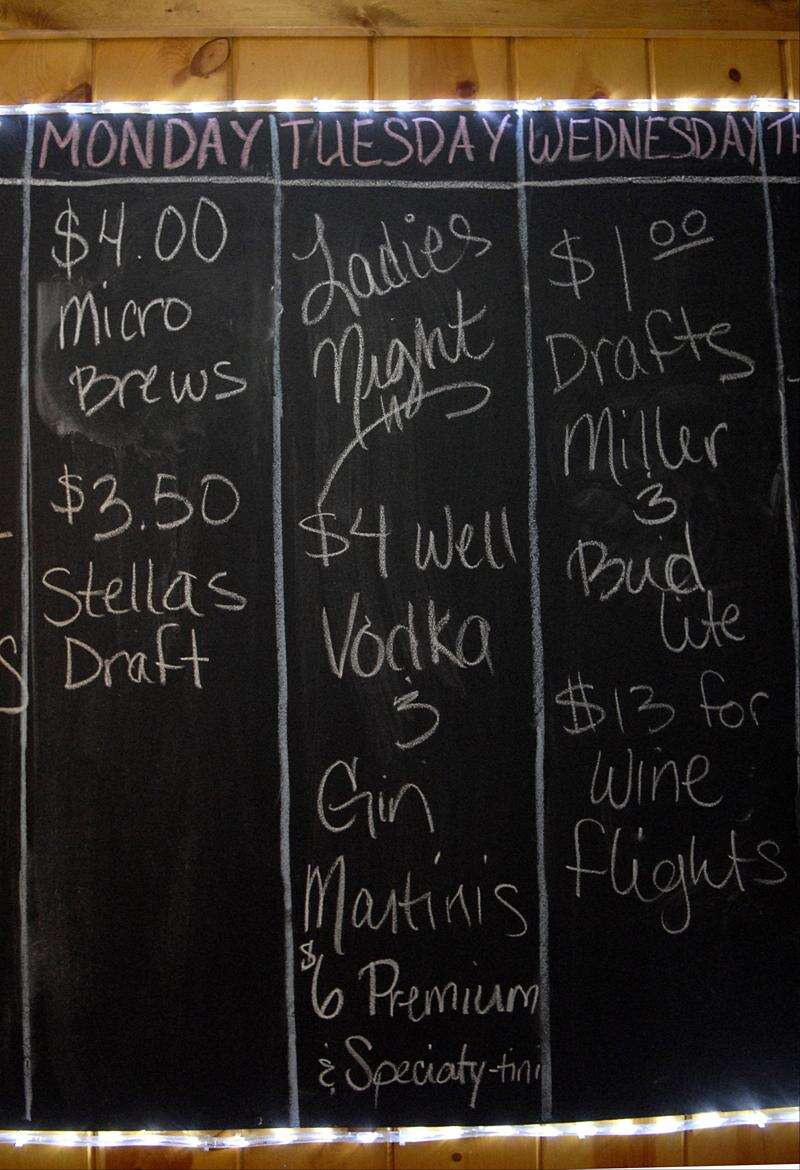 MONDAY
$4.00
Micro
Brews
$3.50
Stellas
Draft
TUESDAY
Ladies
Night
$4 Well
Vodka
&
Gin
Martinis
$6 Premium
& Speciaty-tini
WEDNESDAY
$1.00
Drafts
Miller
&
Bud
Lite
$13 for
Wine
flights
TH